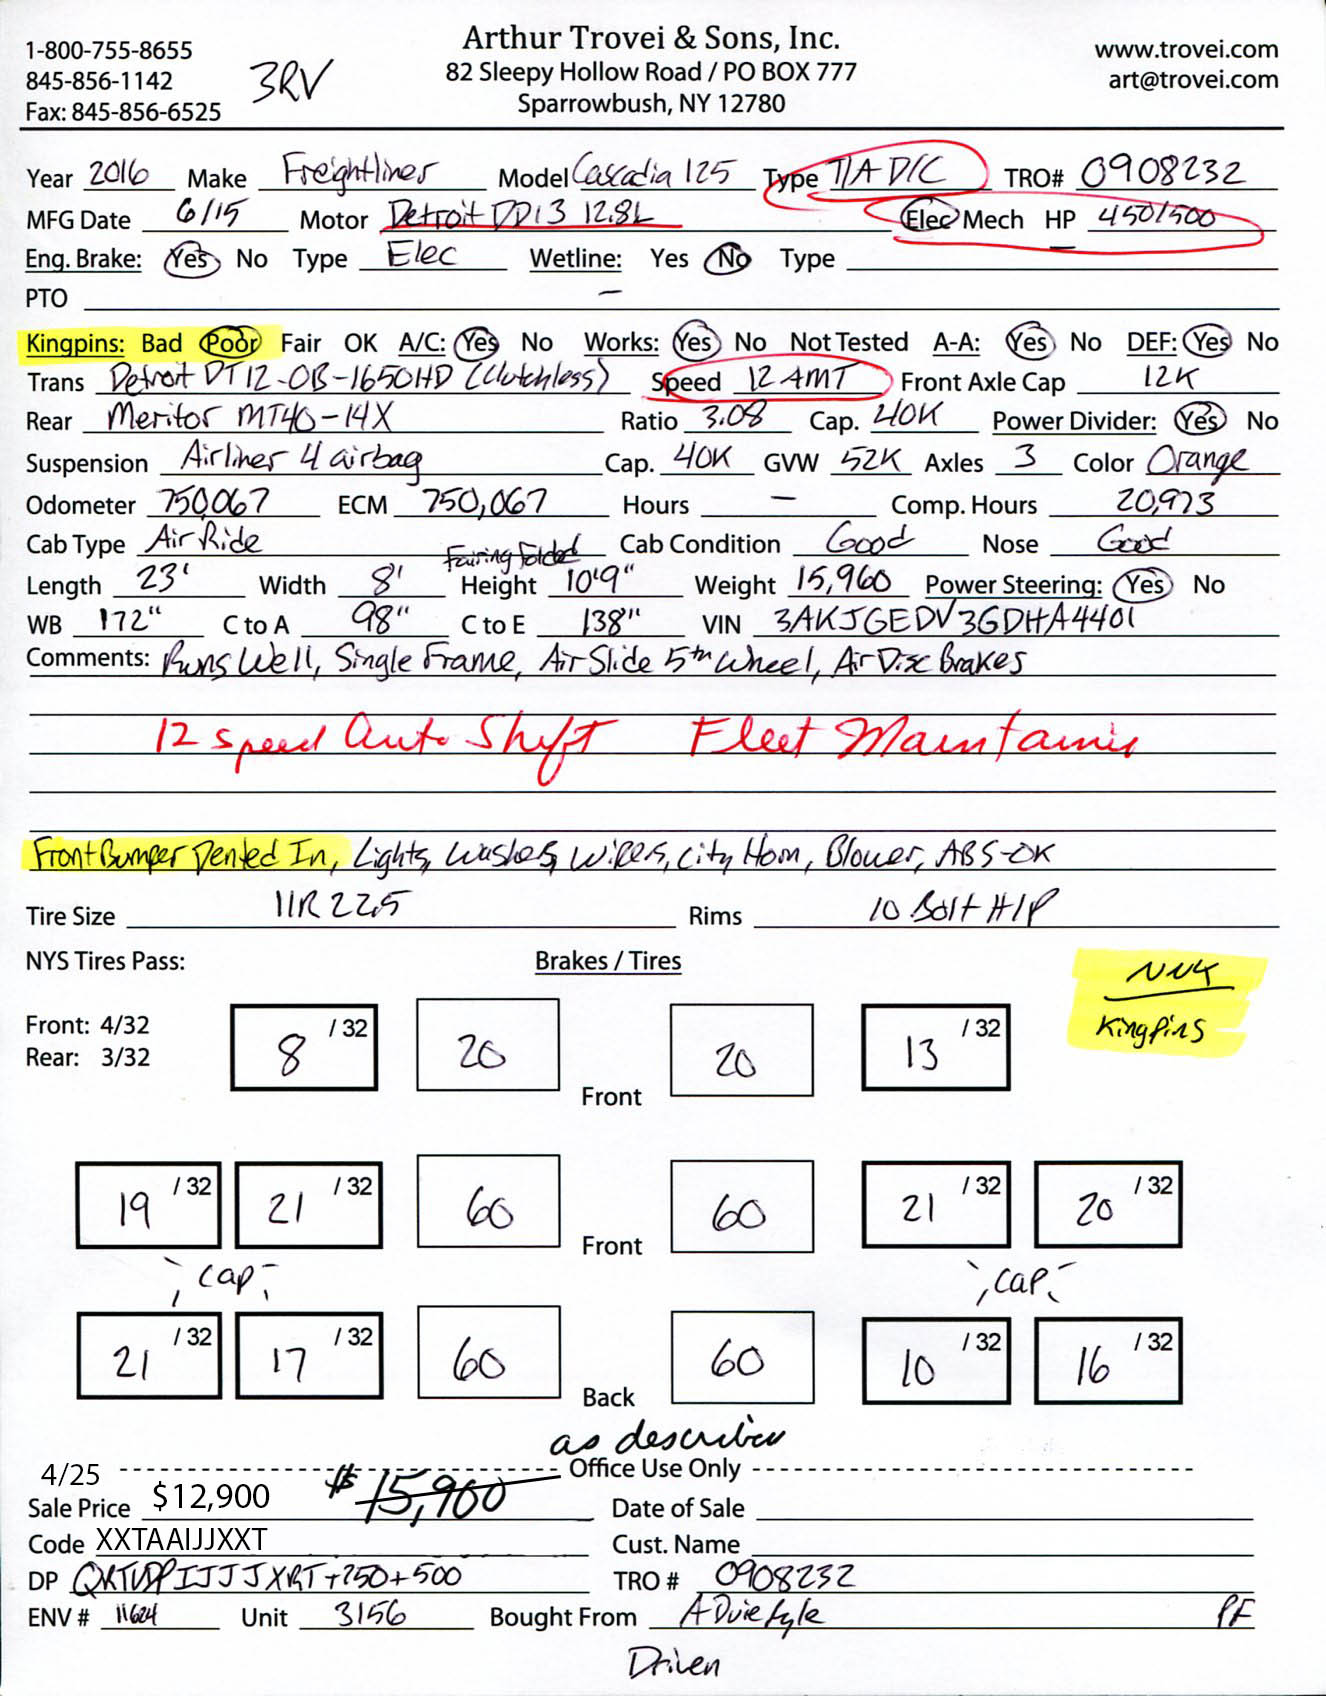 1-800-755-8655
845-856-1142
Fax: 845-856-6525
3RV
Arthur Trovei & Sons, Inc.
82 Sleepy Hollow Road / PO BOX 777
Sparrowbush, NY 12780
www.trovei.com
art@trovei.com
Year 2016 Make Freightliner Model Cascadia 125 Type T/A D/C TRO# 0908232
MFG Date 6/15 Motor Detroit DD13 12.8L Elec Mech HP 450/500
Eng. Brake: Yes No Type Elec Wetline: Yes No Type
PTO –
Kingpins: Bad Poor Fair OK A/C: Yes No Works: Yes No Not Tested A-A: Yes No DEF: Yes No
Trans Detroit DT12-OB-1650HD (Clutchless) Speed 12 AMT Front Axle Cap 12K
Rear Meritor MT40-14X Ratio 3.08 Cap. 40K Power Divider: Yes No
Suspension Airliner 4 airbag Cap. 40K GVW 52K Axles 3 Color Orange
Odometer 750,067 ECM 750,067 Hours – Comp. Hours 20,973
Cab Type Air Ride Cab Condition Good Nose Good
Fairing Folded
Length 23' Width 8' Height 10'9" Weight 15,960 Power Steering: Yes No
WB 172" C to A 98" C to E 138" VIN 3AKJGEDV3GDHA4401
Comments: Runs Well, Single Frame, Air Slide 5th Wheel, Air Disc Brakes
12 speed Auto Shift Fleet
Front Bumper Dented In, Lights, Washers, Wipers, City Horn, Blower, ABS-OK
Tire Size 11R22.5 Rims 10 Bolt H/P
NYS Tires Pass: Brakes / Tires
Kingpins
Front: 4/32
Rear: 3/32
8 /32 20 20 13 /32
Front
19 /32 21 /32 60 60 21 /32 20 /32
Front
cap cap
21 /32 17 /32 60 60 10 /32 16 /32
Back
as described
4/25 Office Use Only
Sale Price $12,900 $15,900 Date of Sale
Code XXTAAIJJXXT Cust. Name
DP +250+500 TRO # 0908232
ENV # 11624 Unit 3156 Bought From PF
Driven